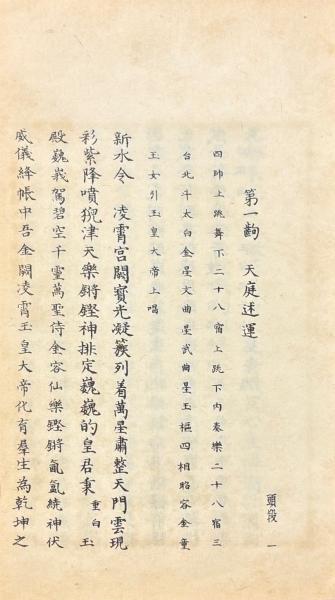 頭段 一
第一齣 天庭述運
四帥上跳舞下二十八宿上跳下內奏樂二十八宿三
台北斗太白金星文曲星武曲星玉樞四相昭容金童
玉女引玉皇大帝上唱
新水令 凌霄宮闕寶光凝簇列着萬星肅整天門雲現
彩紫降噴猊津天樂鏘鏗神排定巍巍的皇君秉 重白 玉
殿巍峩駕碧空千靈萬聖侍金容仙樂鏗鏘氤氳繞神伏
威儀絳帳中吾金闕凌霄玉皇大帝代育羣生為乾坤之